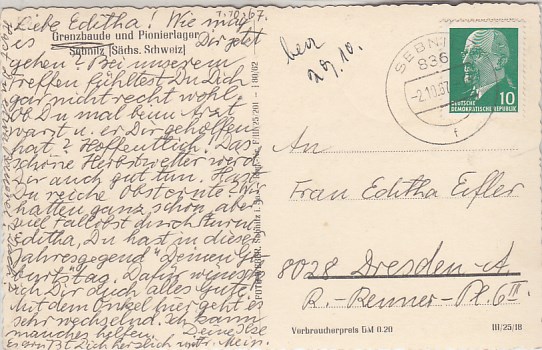 1.10.67.
Liebe Editha! Wie mag
es Dir jetzt
Grenzbaude und Pionierlager
Sebnitz [Sächs. Schweiz]
gehen? Bei unserem
Treffen fühltest Du Dich
gar nicht recht wohl.
Ob Du mal beim Arzt
warst u. er Dir geholfen
hat? Hoffentlich! Das
schöne Herbstwetter werd
Dir auch gut tun. Hast
Du reiche Obsternte? Wir
hatten ganz schön, aber
viel Fallobst durch Sturm.
Editha, Du hast in dieser
Jahresgegend Deinen "Ge
burtstag. Dafür wünsch
ich Dir auch alles Gute!
Mit dem Onkel hier geht es
sehr wechselnd. Ich kann
manches helfen. Deine Ilse
Es grüßt Dich herzlich
beu
29.10.
SEBNITZ
836
-2.10.67
f
DEUTSCHE
DEMOKRATISCHE REPUBLIK
10
An
Frau Editha Eifler
8028 Dresden-A
R.-Renner-Pl. 6 III
Verbraucherpreis DM 0.20
III/25/18